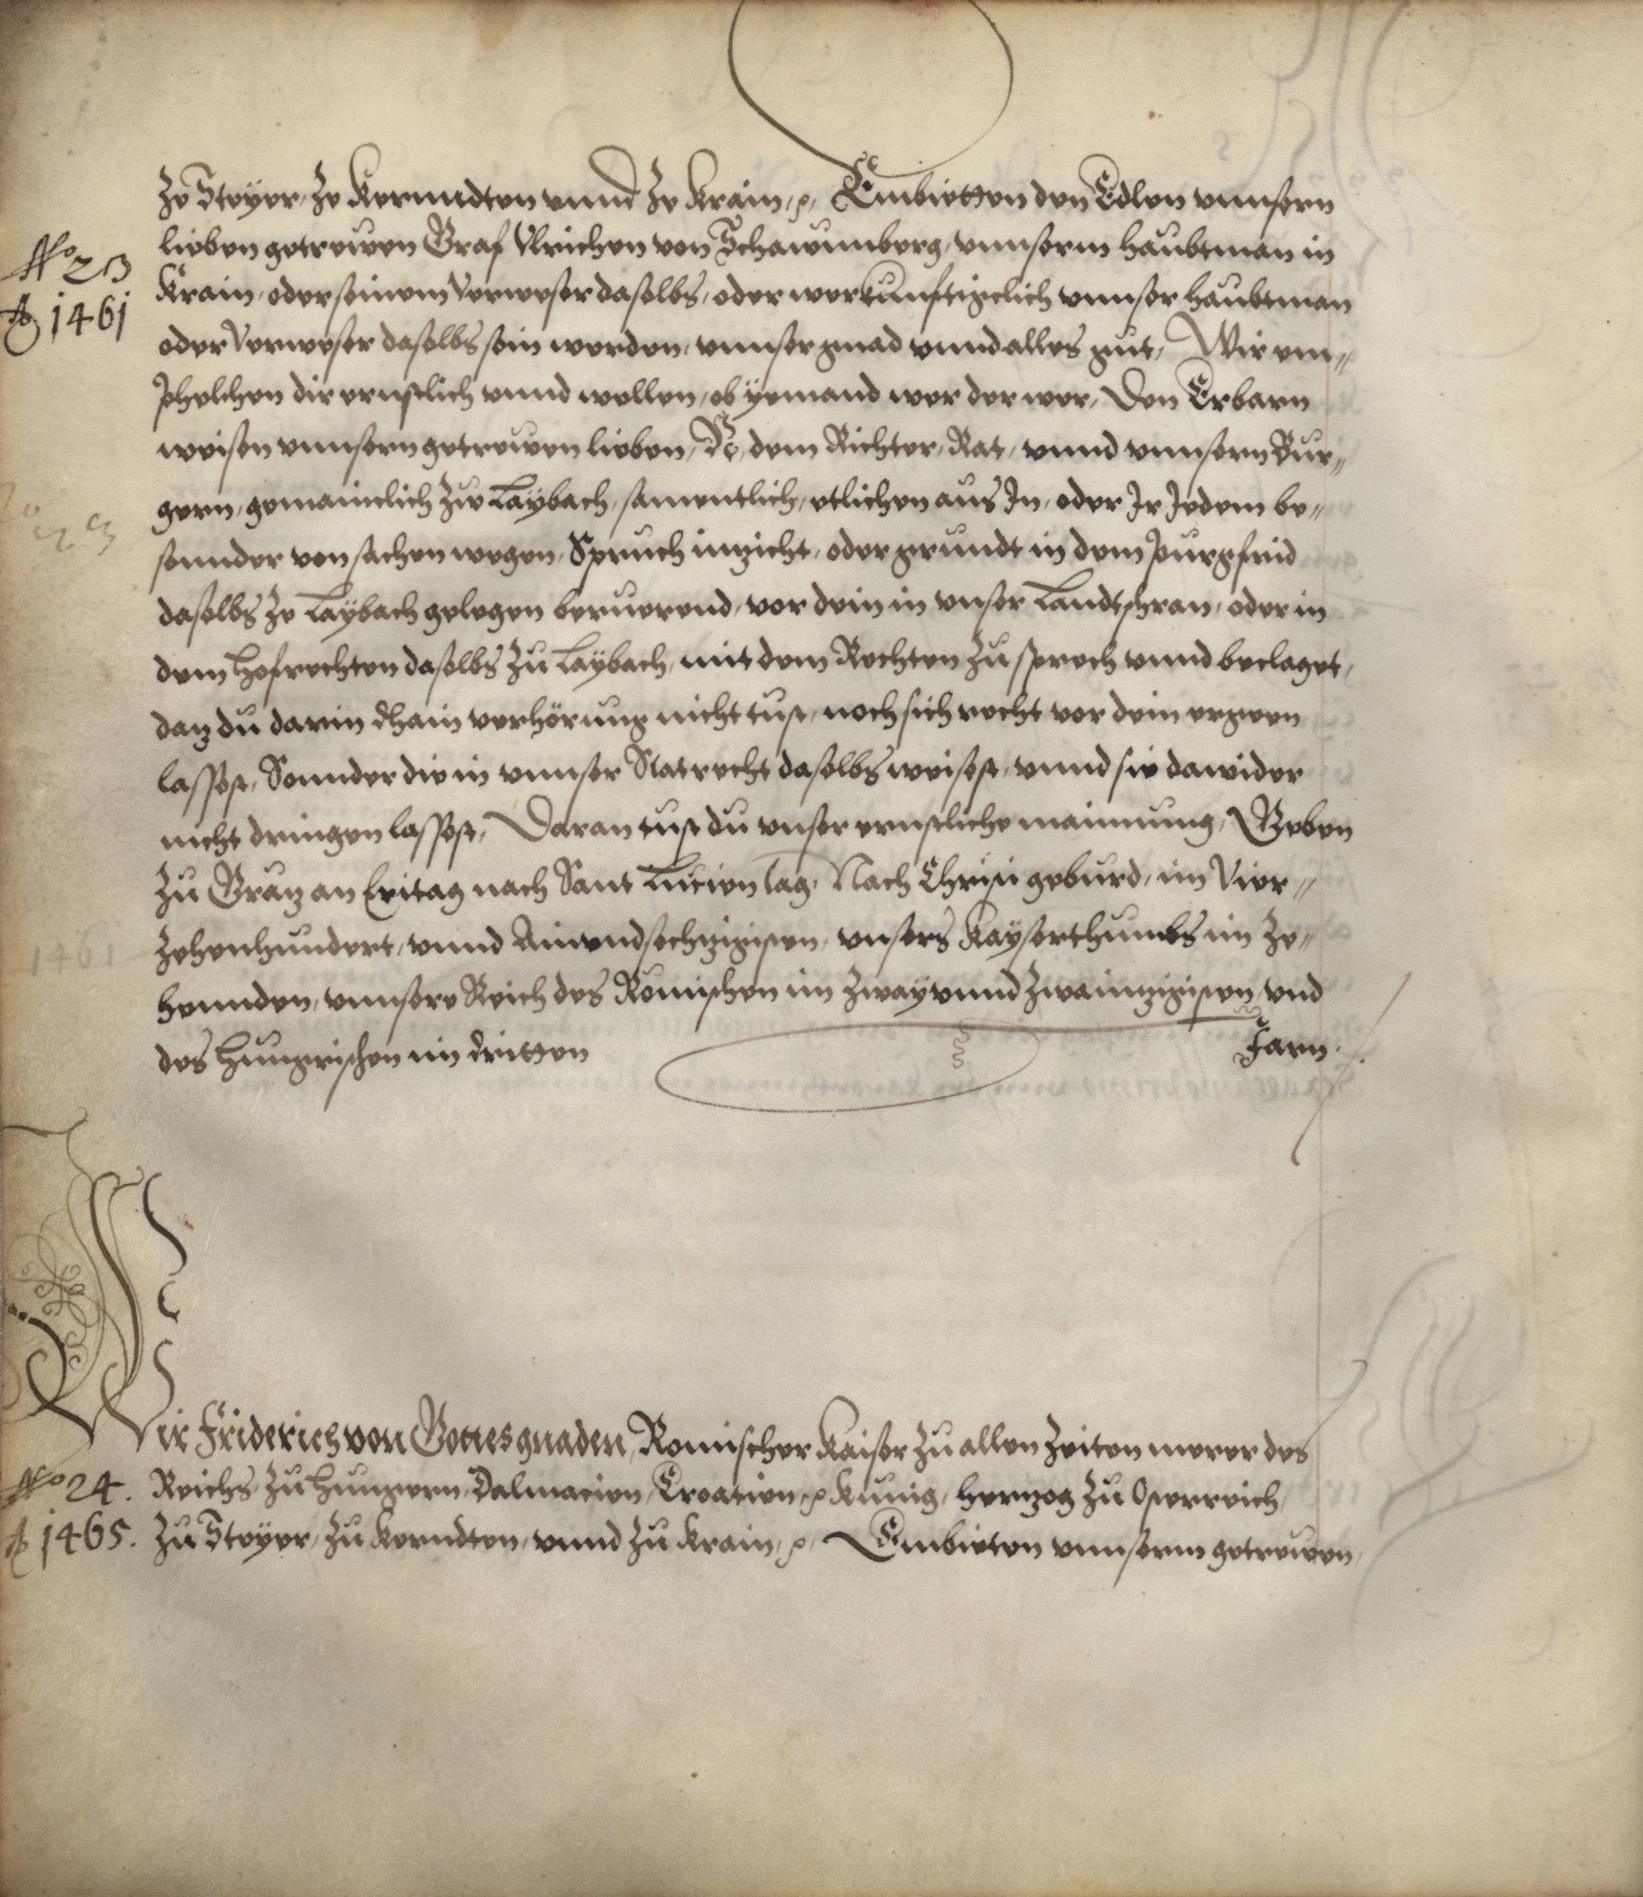 Ze Steyer, Ze Kernndten vnnd Ze Krain, p, Embietten den Edlen vnnsern
lieben getrewen Graf Vlrichen von Schawnnberg, vnnserm haubtman in
No 23
Krain, oder seinem Verweser daselbs, oder wer kunftigclich vnnser haubtman
Ao 1461
oder Verweser daselbs sein werden, vnnser gnad vnnd alles gut, Wir em„
phelchen dir ernstlich vnnd wellen, ob yemand wer der wer, Den Erbarn
weisen vnnsern getrewen lieben, N, dem Richter, Rat, vnnd vnnsern Bur„
gern, gemainclich Zw Laÿbach, samentlich, etlichen aus In, oder Ir Jedem be„
sonnder von sachen wegen, Spruch inzicht, oder grundt in dem purgfrid
daselbs Ze Laÿbach gelegen beruerend, vor dein in vnser Landtschran, oder in
dem Hofrechten daselbs Zu Laÿbach, mit dem Rechten Zu sprech vnnd beclaget,
daz du darin dhain verhörung nicht tust, noch sich recht vor dein ergeen
lassest, Sonnder die in vnnser Statrecht daselbs weisest, vnnd sie dawider
nicht dringen lassest, Daran tust du vnser ernstliche mainnung, Geben
Zu Gratz an Eritag nach Sant Lucien tag, Nach Christi geburd, im Vier„
Zehenhundert, vnnd Ainvndsechzigisten, vnsers Kayserthumbs im Ze„
hennden, vnnsere Reich des Romischen im Zwayvnnd Zwainzigisten, vnd
des Hungrischen im dritten Jarn.
Wir Friderich von Gottes gnaden, Romischer Kaiser Zu allen Zeiten merer des
No 24. Reichs, Zu Hungern, Dalmacien, Croacien, p Kunig, Hertzog Zu Osterreich,
Ao 1465. Zu Steyer, Zu Kerndten, vnnd Zu Krain, p, Embieten vnnserm getrewen,